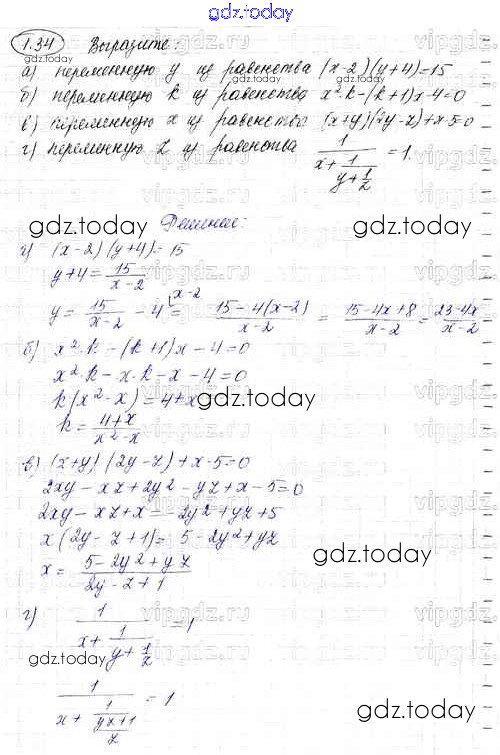 gdz.today
1.34 Выразите:
а) переменную y из равенства (x-2)(y+4)=15
б) переменную k из равенства x²·k-(k+1)x-4=0
в) переменную x из равенства (x+y)(2y-z)+x-5=0
г) переменную z из равенства 1/(x+1/(y+1/z)) = 1.
gdz.today
gdz.today
Решение:
а) (x-2)(y+4)=15
y+4 = 15/(x-2)
y = 15/(x-2) - 4 = (15-4(x-2))/(x-2) = (15-4x+8)/(x-2) = (23-4x)/(x-2)
б) x²·k-(k+1)x-4=0
x²·k-x·k-x-4=0
k(x²-x)=4+x
gdz.today
k = (4+x)/(x²-x)
в) (x+y)(2y-z)+x-5=0
2xy-xz+2y²-yz+x-5=0
2xy-xz+x=-2y²+yz+5
x(2y-z+1)=5-2y²+yz
gdz.today
x = (5-2y²+yz)/(2y-z+1)
г) 1/(x+1/(y+1/z)) = 1
gdz.today
1/(x+1/((yz+1)/z)) = 1
gdz.today